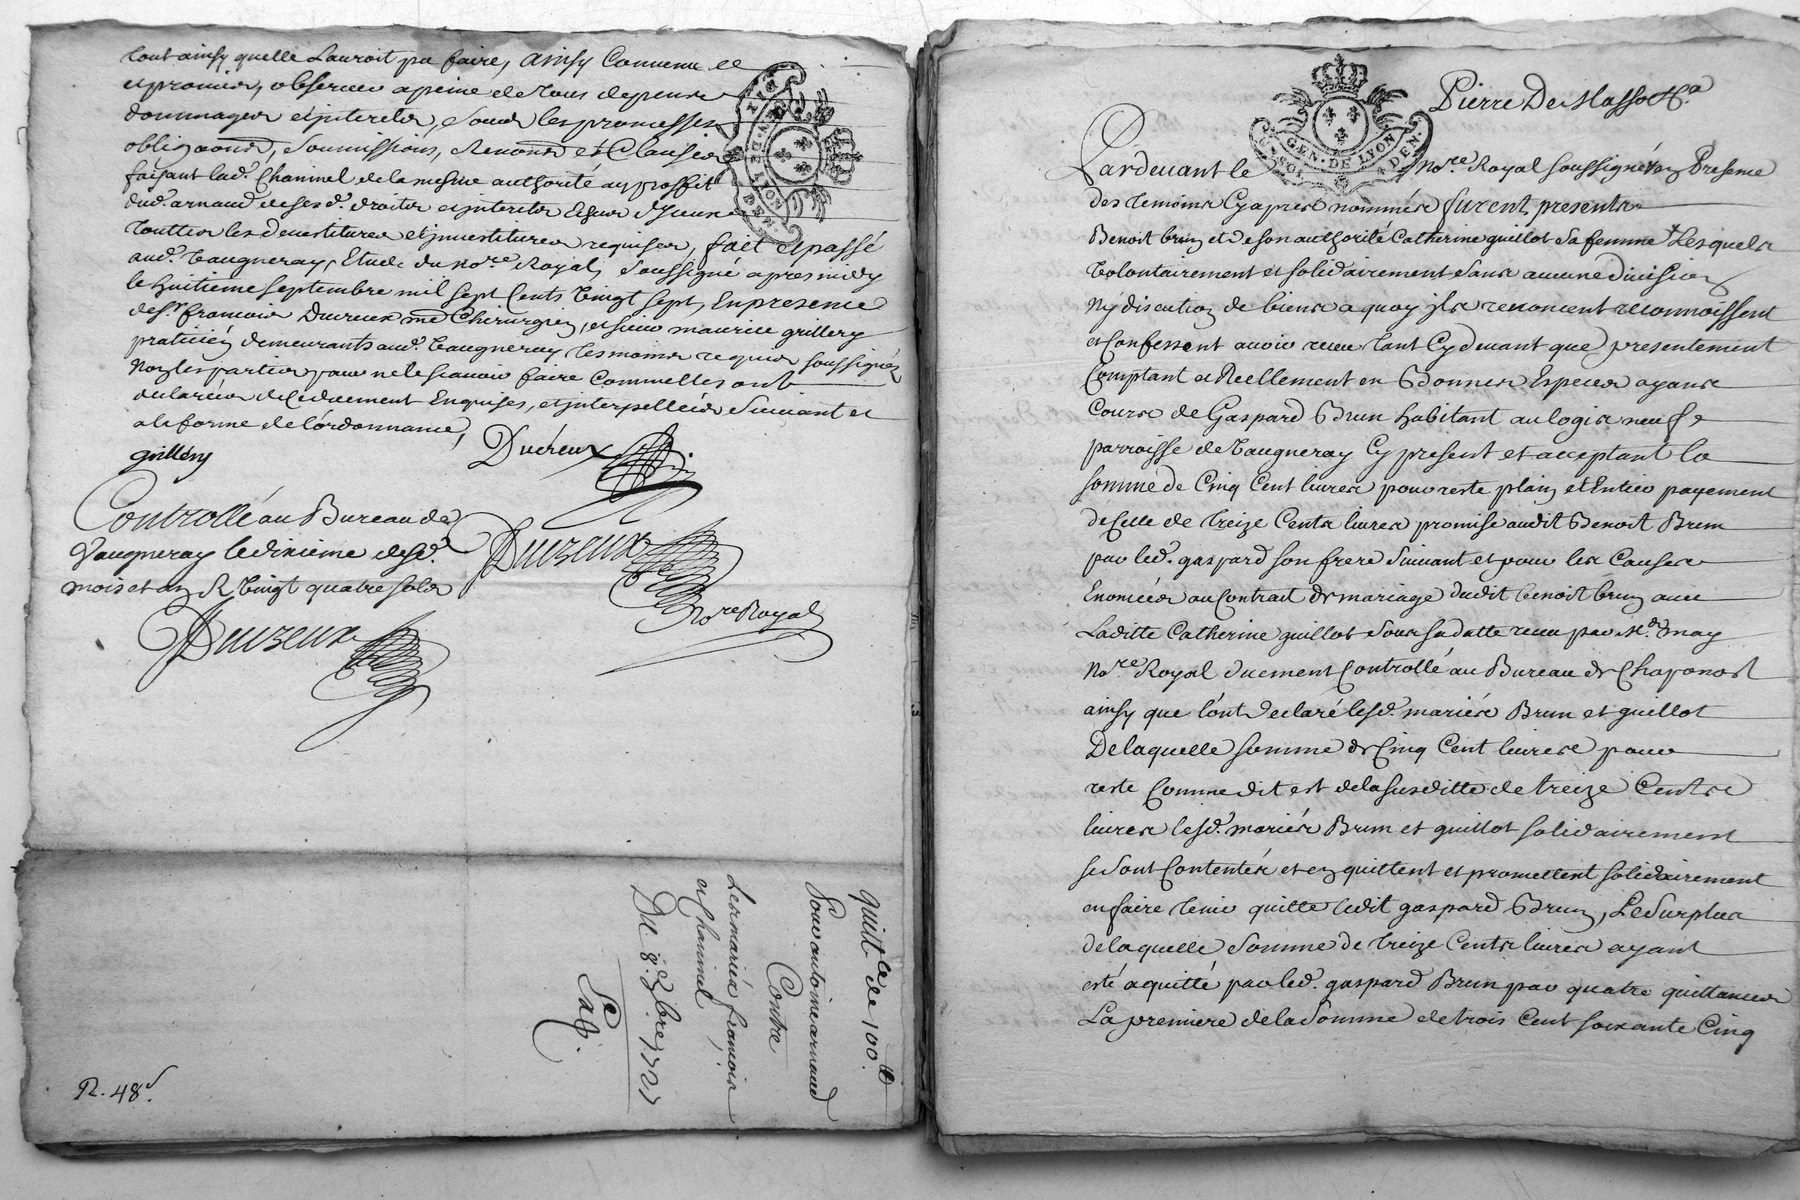 tout ainsy quelle Lauroit pu faire, ainsy Convenu et
et promis, observer a peine de tous depens
dommages et interets, sous les promesses
obligaons, soumissions, Renonons et Clauses
faisant lad. Chaninel de la mesme authorité au proffit
dud. arnaud de ses d. droits et interets
touttes les devestitures et investitures requises, fait et passé
aud. Vaugneray, Etude du nore. Royal, soussigné apres midy
le huitieme septembre mil sept Cents vingt sept, En presence
de sr. francois Ducreux me Chirurgien, et sieur maurice grillery
praticien demeurants aud. Vaugneray tesmoins requis soussignés
Non les parties pour ne le scavoir faire Comme elles ont
declarées de ce duement Enquises, et interpellées Suivant et
a la forme de l'ordonnance,
grillery
Ducreux
Controllé au Bureau de
Vaugneray le dixieme desd.
mois et an R vingt quatre sols
Duizeux
Duizeux
Nore Royal
quitce de 100 ll
Pour antoine arnaud
Contre
Les mariés francois
et Chaninel
Du 8e. 7bre 1727
R. 48s.
Pierre De Masso Ha
GEN. DE LYON
Pardevant le nore. Royal soussigné En Presence
des temoins Cy apres nommés furent presents
Benoit brun et de son authorité Catherine guillot sa femme Lesquels
Volontairement et solidairement sans aucune division
Ny discution de biens a quoy ils renoncent reconnoissent
et Confessent avoir receu tant Cy devant que presentement
Comptant et Reellement en Bonnes Especes ayans
Cours de Gaspard Brun habitant au logis neuf
parroisse de Vaugneray Cy present et acceptant la
somme de Cinq Cent livres pour reste plain et Entier payement
de Celle de treize Cents livres promise audit Benoit Brun
par led. gaspard son frere Suivant et pour les Causes
Enoncées au Contrait de mariage dudit benoit brun avec
Laditte Catherine guillot sous sa datte receu par Me. may
Nore Royal duement Controllé au Bureau de Chaponost
ainsy que l'ont declaré lesd. mariés Brun et guillot
De laquelle somme de Cinq Cent livres pour
reste Comme dit est de la susditte de treize Cents
livres lesd. mariés Brun et guillot solidairement
se sont Contentés et en quittent et promettent solidairement
en faire tenir quitte ledit gaspard Brun, Le surplus
de laquelle somme de treize Cents livres ayant
esté aquitté par led. gaspard Brun par quatre quittances
La premiere de la somme de trois Cent soixante Cinq